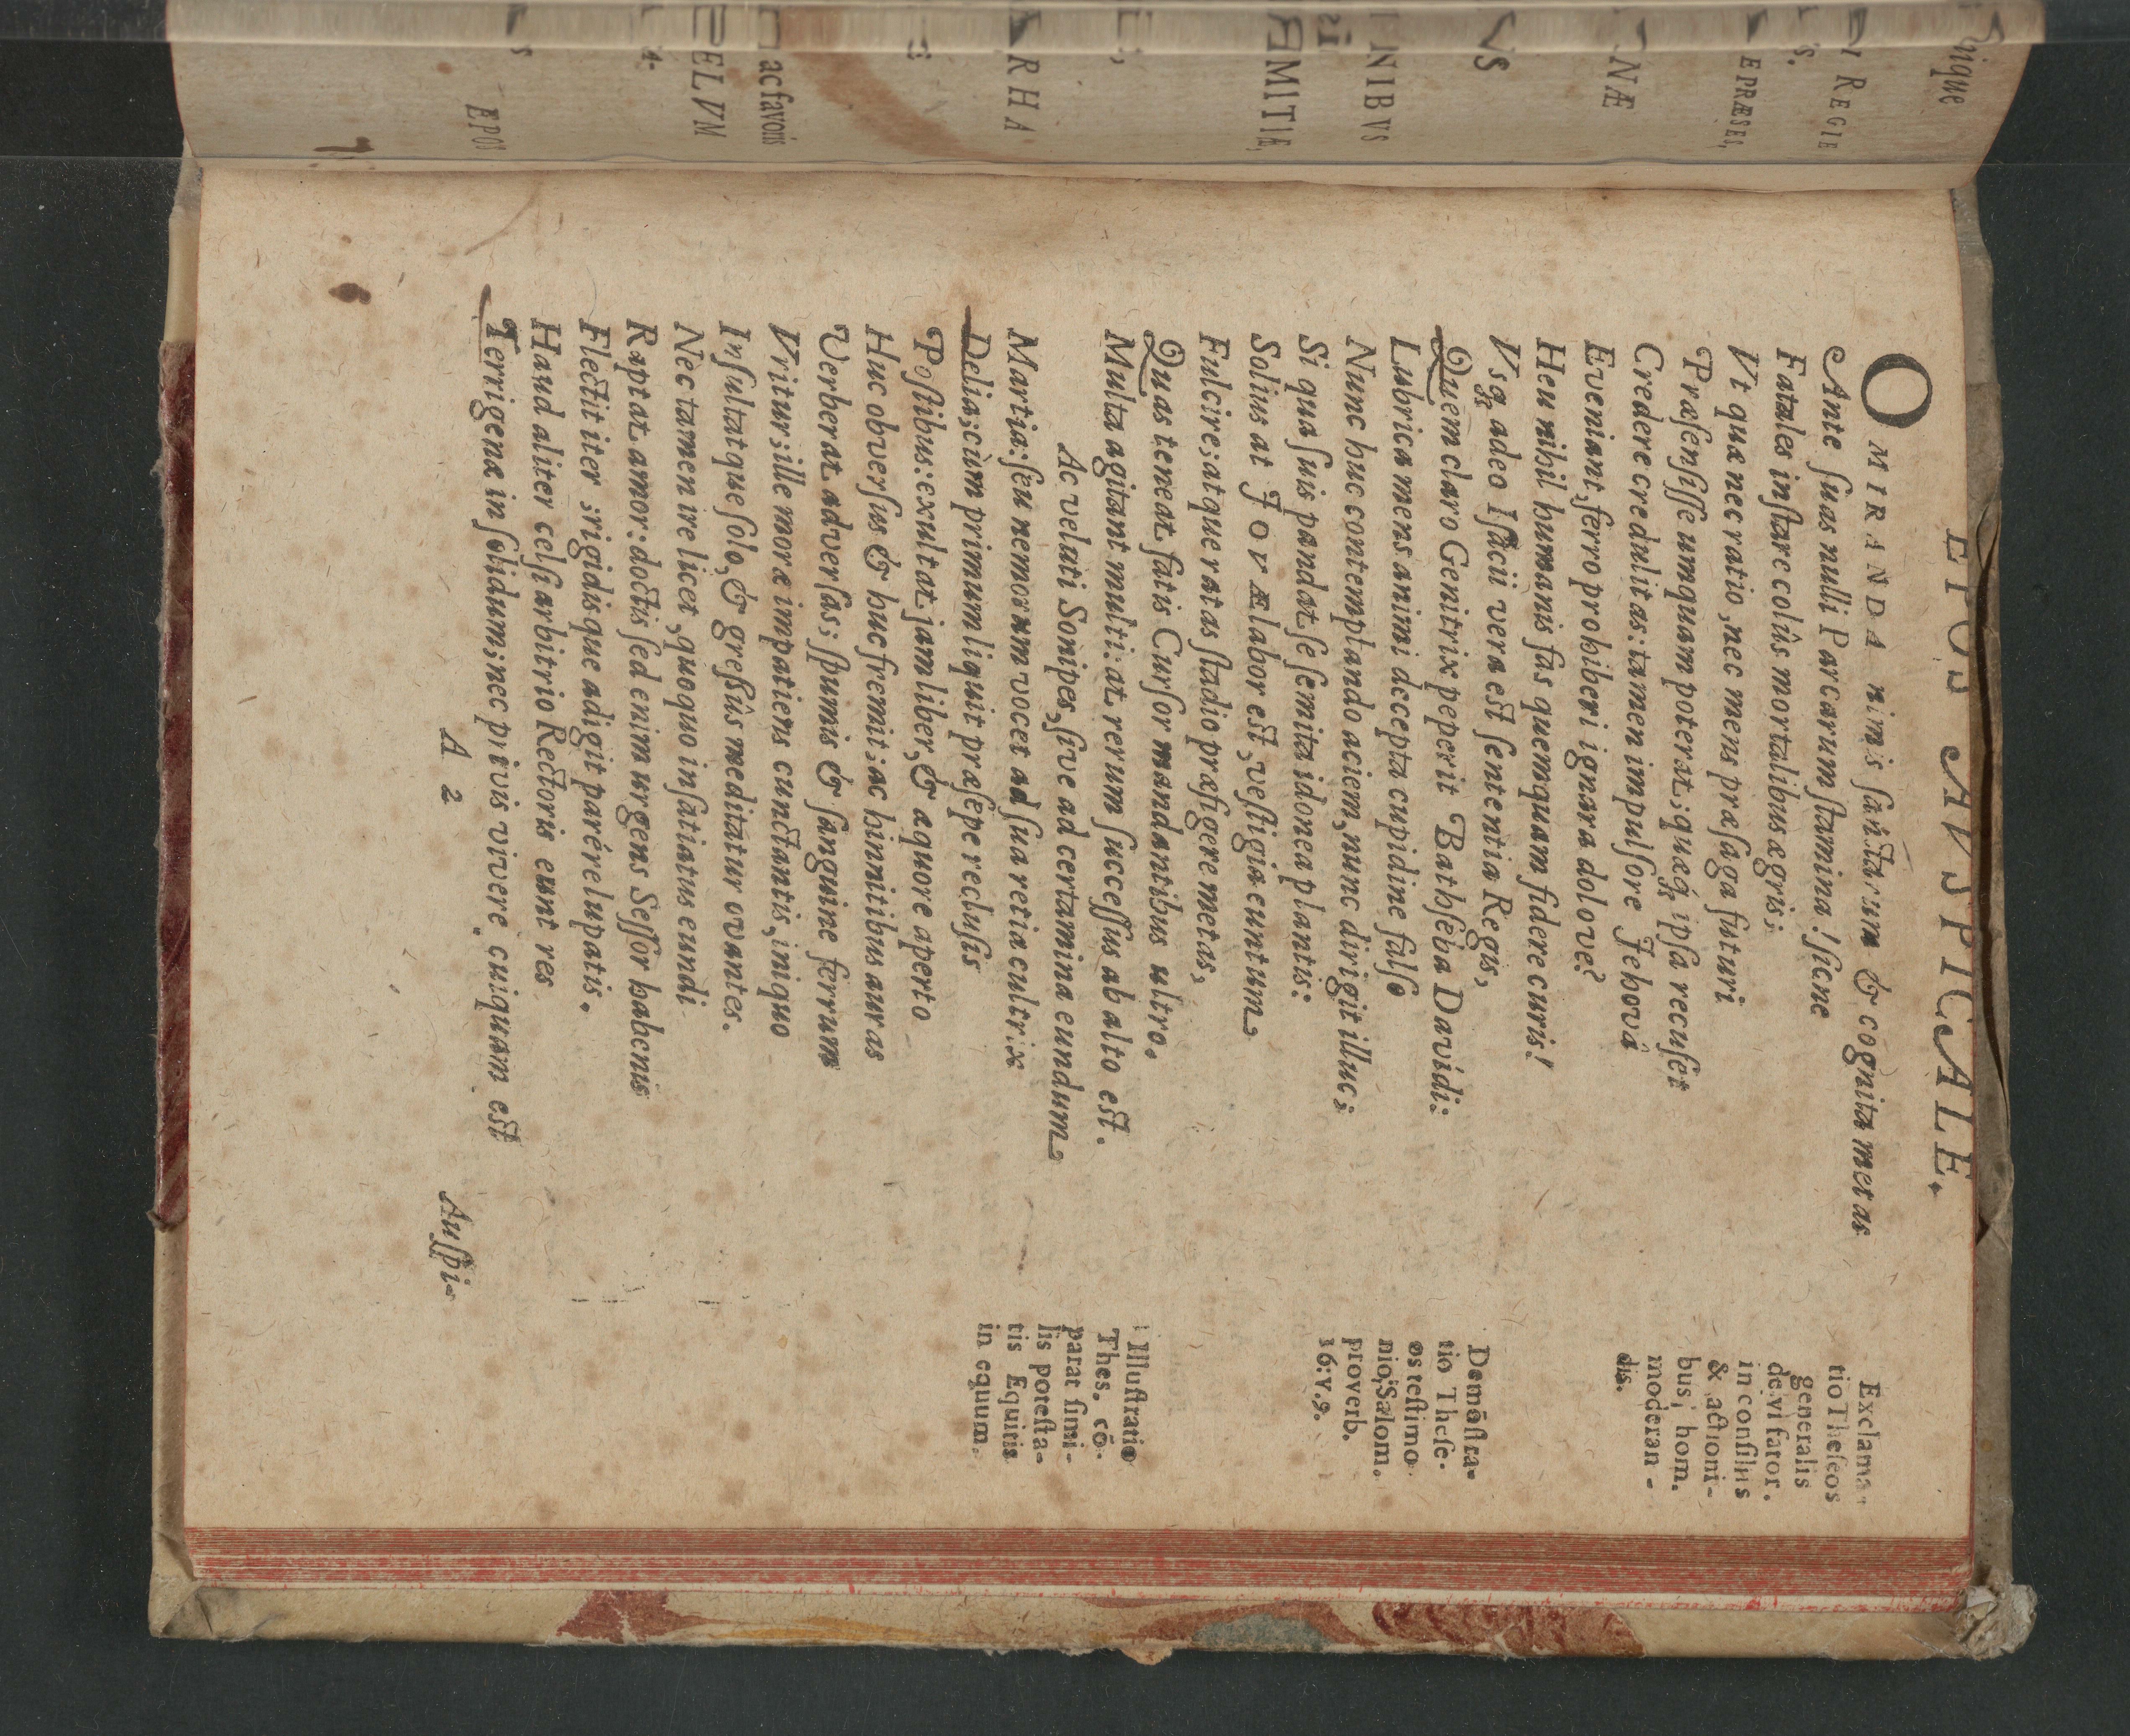 EPOS AVSPICALE.
O MIRANDA nimis sanctarum & cognita metas
Ante suas nulli Parcarum stamina! siccne
Fatales instare colûs mortalibus ægris;
Vt quæ nec ratio, nec mens præsaga futuri
Præsensisse umquam poterat; quæq; ipsa recuset
Credere credulitas: tamen impulsore Jehová
Eveniant, ferro prohiberi ignara dolove?
Heu nihil humanis fas quemquam fidere curis!
Vsq; adeo Isacii vera est sententia Regis,
Quem claro Genitrix peperit Bathseba Davidi:
Lubrica mens animi decepta cupidine falso
Nunc huc contemplando aciem, nunc dirigit illuc;
Si qua suis pandat se semita idonea plantis:
Solius at JOVÆ labor est, vestigia euntum
Fulcire; atque ratas stadio præfigere metas,
Quas teneat fatis Cursor mandantibus ultro.
Multa agitant multi: at rerum successus ab alto est.
Ac velati Sonipes, sive ad certamina eundum
Martia: seu nemorum vocet ad sua retia cultrix
Delia; cùm primum liquit præsepe reclusis
Postibus: exultat jam liber, & æquore aperto
Huc obversus & huc fremit: ac hinnitibus auras
Verberat adversas; spumis & sanguine ferrum
Vritur; ille moræ impatiens cunctantis, iniquo
Insultatque solo, & gressûs meditatur ovantes.
Nec tamen ire licet, quoquo insatiatus eundi
Raptat amor: doctis sed enim urgens Sessor habenis
Flectit iter; rigidisque adigit parére lupatis.
Haud aliter celsi arbitrio Rectoris eunt res
Terrigenæ in solidum; nec privis vivere cuiquam est
A 2
Auspi-
Exclama-
tio Theseos
generalis
de vi fator.
in consiliis
& actioni-
bus hom.
moderan-
dis.
Demōstra-
tio These-
os testimo
nio Salom.
proverb.
16: v. 9.
Illustratio
Thes. cō-
parat simi-
lis potesta-
tis Equitis
in equum.
nique
I REGIE
s.
EPRÆSES,
NÆ
VS
NIBVS
ÆMITIÆ,
RHA
ac favoris
ELVM
4.
s
EPOS